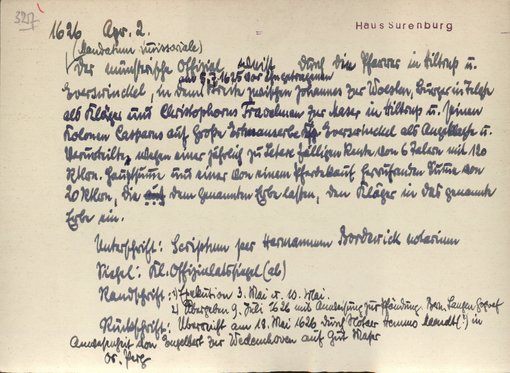 327
Haus Surenburg
1626 Apr. 2.
(Mandatum immissoriale)
Der münsterische Offizial weist durch die Pfarrer in Hiltrup u.
am 9.7.1625 vor
Everswinckel, in dem Streite zwischen Johannes zur Wolsten, Bürger in Telgte
als Kläger und Christophorus Travelman zur Maser in Hiltrup u. seinen
Kolonen Casparus auf Große Kspl. Everswinckel als Angeklagte u.
Verurteilte, wegen einer jährlich zu fälligen Rente von 6 Talern mit 120
Rtlrn. Hauptsumme und einer von einem Pferdekauf herrührenden Summe von
20 Rtlrn, die auf dem genannten Erbe lasten, den Kläger in das genannte
Erbe ein.
Unterschrift: Scriptum per Hermannum Borderwick notarium
Siegel: Kl. Offizialatssiegel (ab)
Randschrift: 1) Exekution 3. Mai u. 10. Mai.
2) Übergeben 9. Juli 1626 mit Anweisung zur Pfändung.
Rückschrift: Überreicht am 18. Mai 1626 durch Notar (?) in
Anwesenheit von Engelbert zur Wedemhoven auf Gut Maser
Or. Perg.